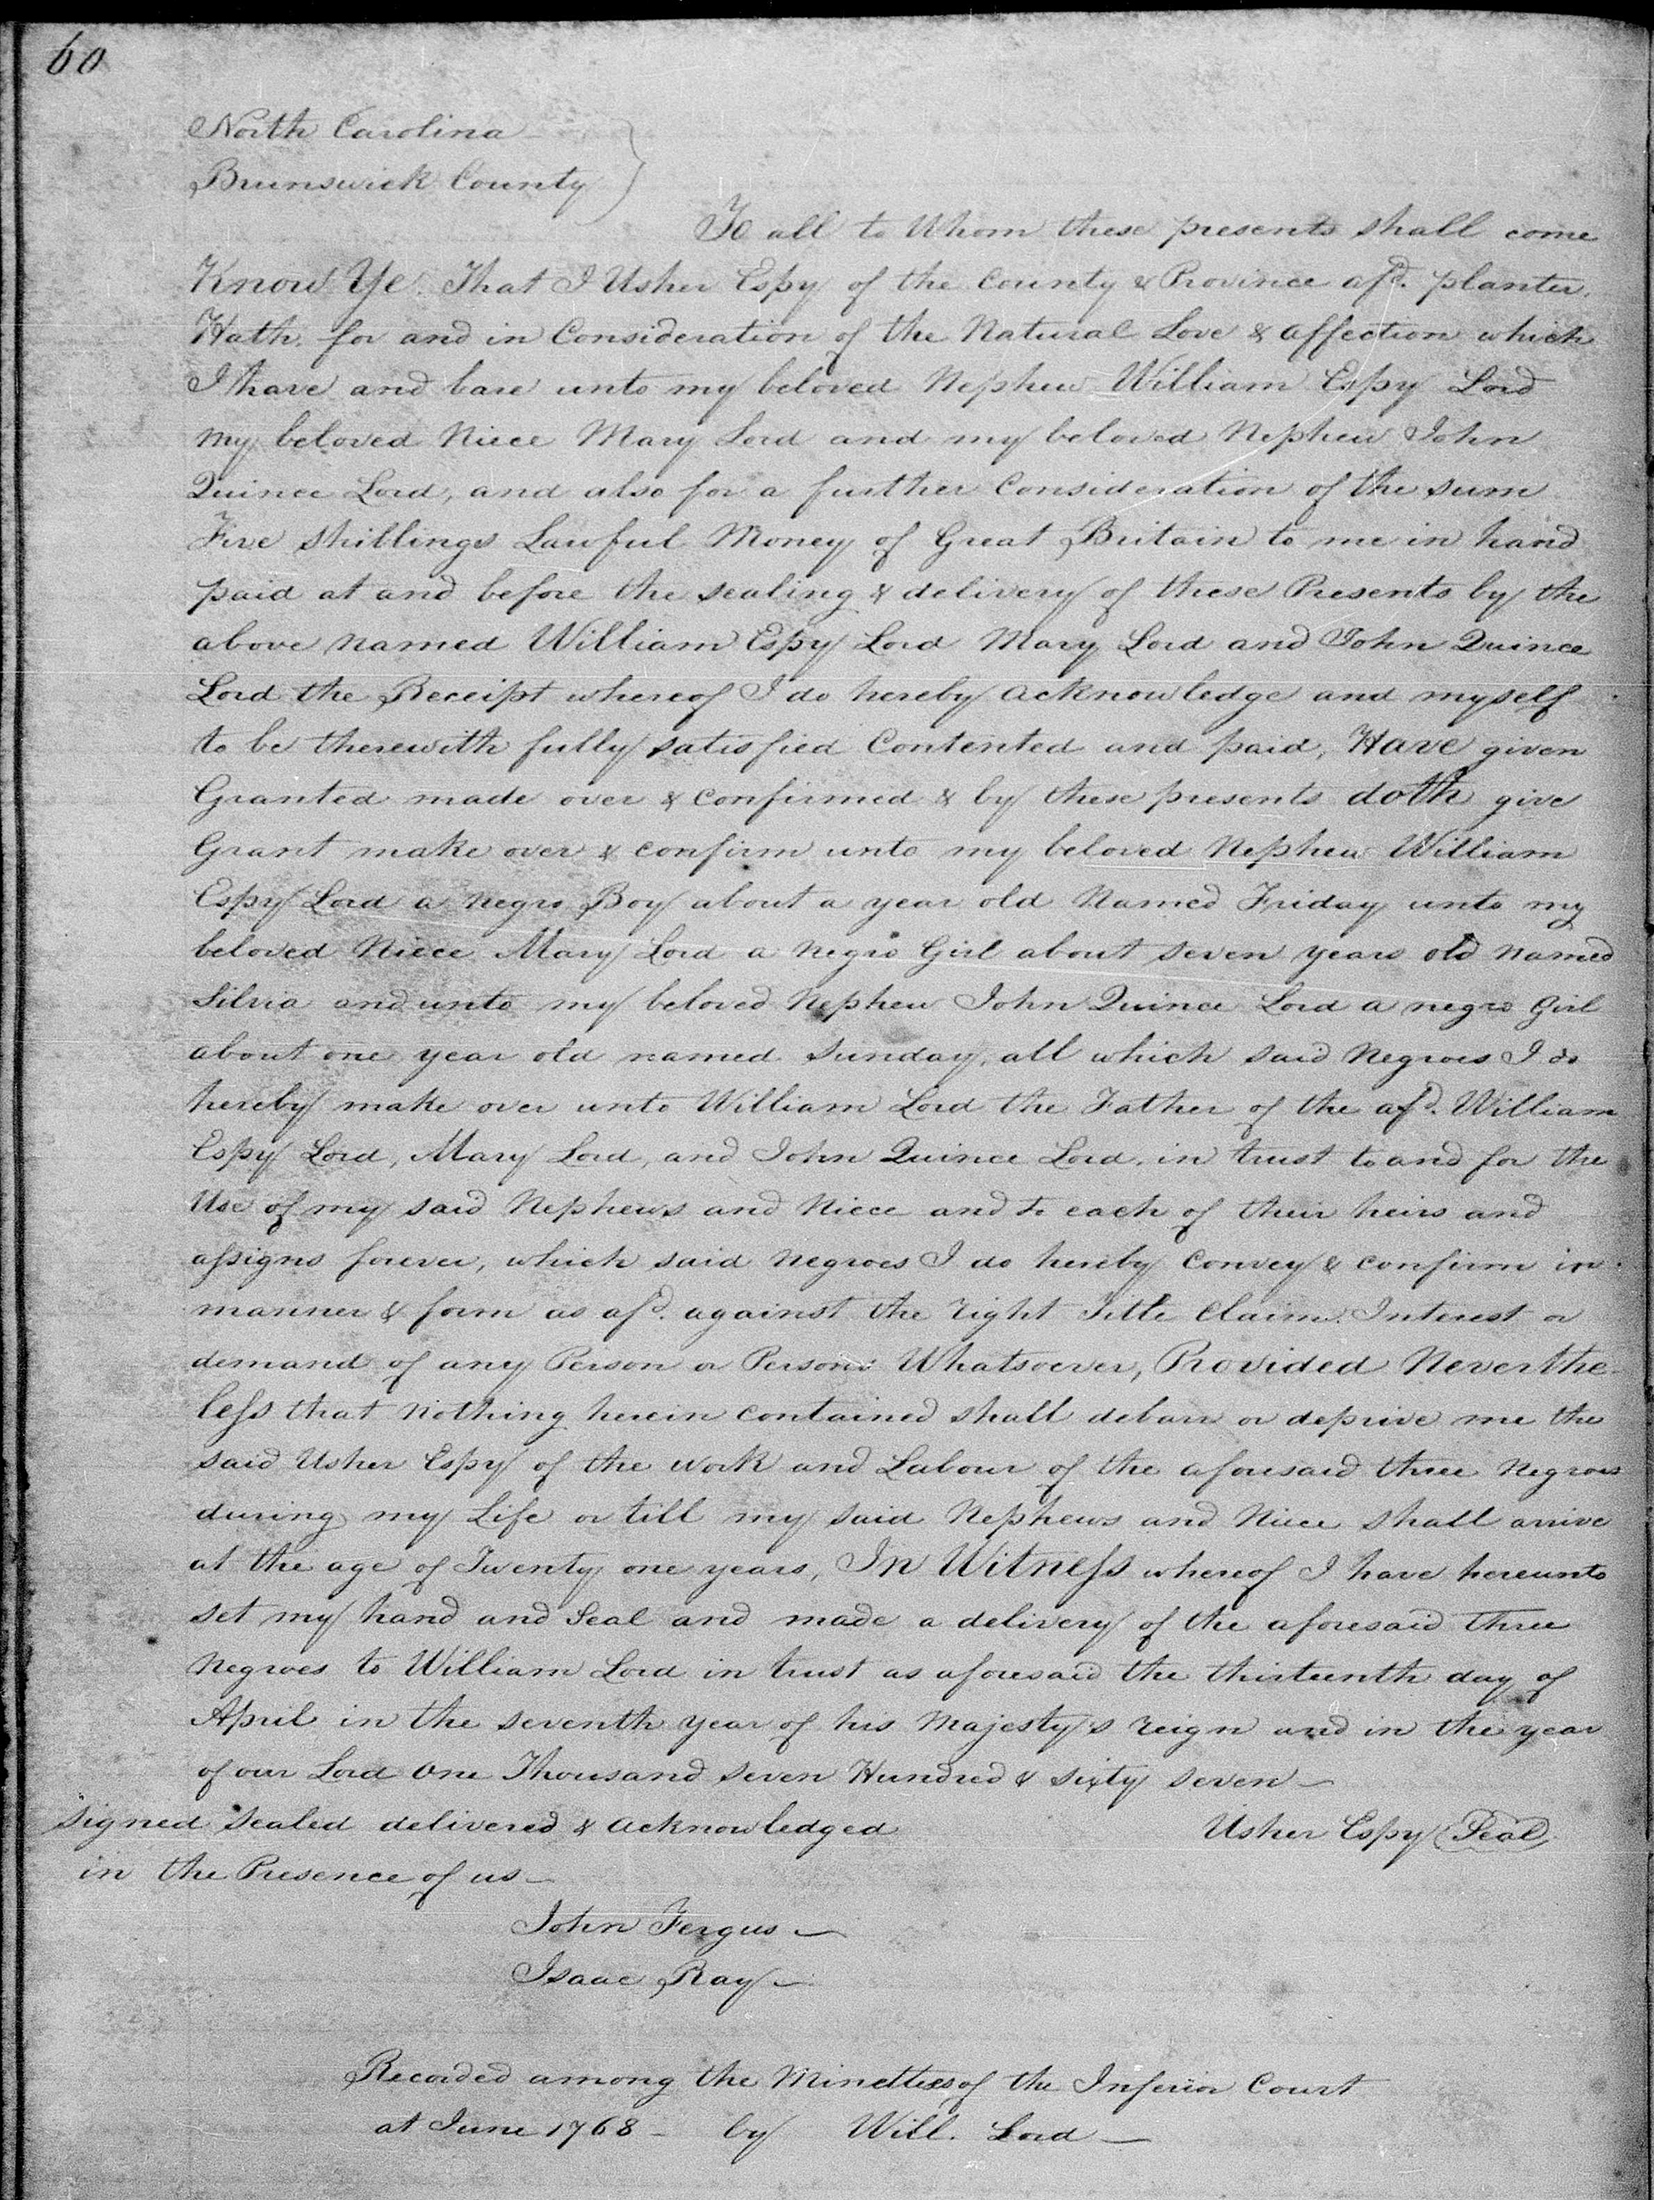 60
North Carolina
Brunswick County
To all to Whom these presents shall come
Know Ye. That I Usher Espy of the County & Province afd. planter,
Hath, for and in Consideration of the Natural Love & affection which
I have and bare unto my beloved Nephew William Espy Lord
my beloved Niece Mary Lord and my beloved Nephew John
Quince Lord, and also for a further Consideration of the sum
Five shillings Lawful Money of Great Britain to me in hand
paid at and before the sealing & delivery of these Presents by the
above named William Espy Lord Mary Lord and John Quince
Lord the Receipt whereof I do hereby acknowledge and myself
to be therewith fully satisfied Contented and paid, Have given
Granted made over & confirmed & by these presents doth give
Grant make over & confirm unto my beloved Nephew William
Espy Lord a negro Boy about a year old Named Friday unto my
beloved Niece Mary Lord a negro Girl about seven years old named
Silvia and unto my beloved Nephew John Quince Lord a negro Girl
about one year old named Sunday, all which said Negroes I do
hereby make over unto William Lord the Father of the afd. William
Espy Lord, Mary Lord, and John Quince Lord, in trust to and for the
Use of my said Nephews and Niece and to each of their heirs and
assigns forever, which said Negroes I do hereby Convey & confirm in
manner & form as afd. against the right Title Claim Interest or
demand of any Person or Persons Whatsoever, Provided Neverthe-
less that nothing herein contained shall debarr or deprive me the
said Usher Espy of the work and Labour of the aforesaid three Negroes
during my Life or till my said Nephews and Niece shall arrive
at the age of Twenty one years, In Witness whereof I have hereunto
set my hand and Seal and made a delivery of the aforesaid three
Negroes to William Lord in trust as aforesaid the thirteenth day of
April in the seventh year of his Majesty's reign and in the year
of our Lord One Thousand Seven Hundred & sixty seven —
Signed Sealed delivered & acknowledged Usher Espy (Seal)
in the Presence of us —
John Fergus —
Isaac Ray —
Recorded among the Minettes of the Inferior Court
at June 1768 — by Will. Lord —